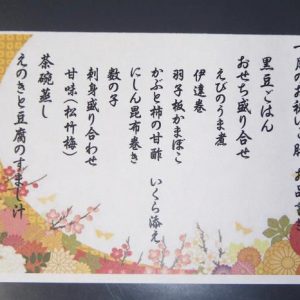 黒豆ごはん
おせち盛り合せ
えびのうま煮
伊達巻
羽子板かまぼこ
かぶと柿の甘酢 いくら添え
にしん昆布巻き
数の子
刺身盛り合わせ
甘味(松竹梅)
茶碗蒸し
えのきと豆腐のすまし汁